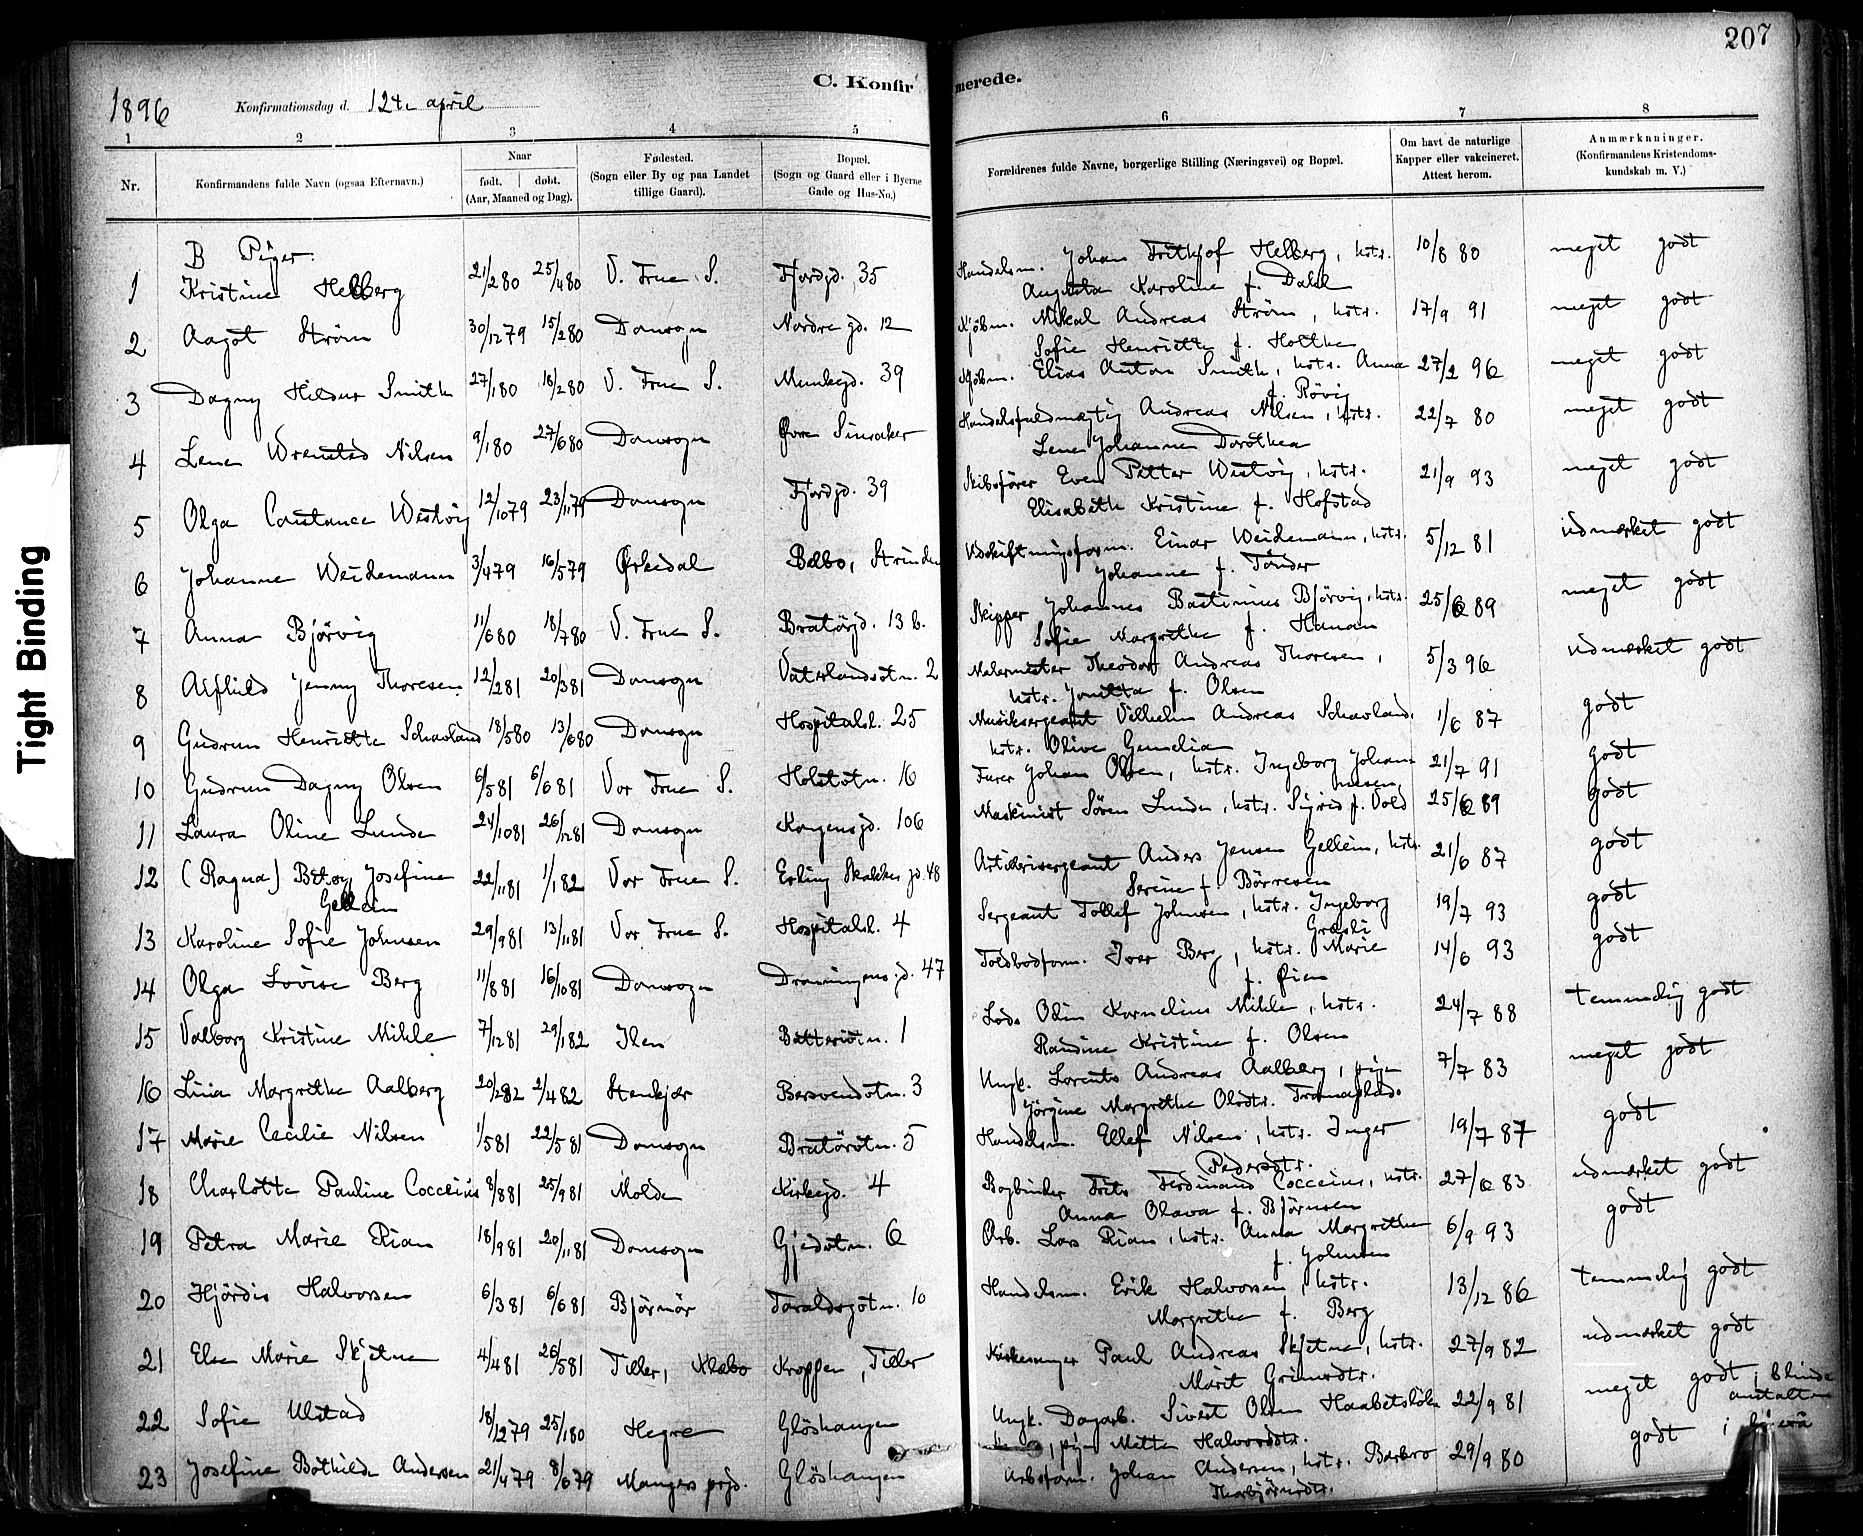 207
C. Konfirmerede.
1896 Konfirmationsdag d. 12te april
1 2 3 4 5 6 7 8
Nr.
Konfirmandens fulde Navn (ogsaa Efternavn.)
Naar født. døbt. (Aar, Maaned og Dag).
Fødested. (Sogn eller By og paa Landet tillige Gaard).
Bopæl. (Sogn og Gaard eller i Byerne Gade og Hus-No.)
Forældrenes fulde Navne, borgerlige Stilling (Næringsvei) og Bopæl.
Om havt de naturlige Kapper eller vakcineret. Attest herom.
Anmærknninger. (Konfirmandens Kristendomskundskab m. V.)
B Piger.
1 Kristine Helberg 21/2 80 25/4 80 V. Frue S. Fjordgd. 35 Handelsm. Johan Frithjof Helberg, hstr. Augusta Karoline f. Dahl 10/8 80 meget godt
2 Aagot Strøm 30/12 79 15/2 80 Domsogn Nordre gd. 12 Kjøbm. Mikal Andreas Strøm, hstr. Sofie Henriette f. Holthe 17/9 91 meget godt
3 Dagny Hildur Smith 27/1 80 18/2 80 V. Frue S. Munkegd. 39 Kjøbm. Elias Anton Smith, hstr. Anna f. Røvig 27/2 96 meget godt
4 Lena Wrensted Nilsen 9/1 80 27/6 80 Domsogn Øvre Sinsaker Handelsfuldmægtig Andreas Nilsen, hstr. Lena Johanna Dorothea 22/7 80 meget godt
5 Olga Constance Westvig 12/10 79 23/11 79 Domsogn Fjordgd. 39 Skibsfører Even Petter Westvig, hstr. Elisabeth Kristine f. Hofstad 21/9 93 meget godt
6 Johanna Weidemann 3/4 79 16/5 79 Ørkedal Belbo, Strinden Udskiftningsform. Einar Weidemann, hstr. Johanna f. Tønder 5/12 81 udmærket godt
7 Anna Bjørvig 11/6 80 18/7 80 V. Frue S. Bratørgd. 13 b. Skipper Johannes Bastinius Bjørvig, hstr. Sofie Margrethe f. Hanan 25/6 89 meget godt
8 Alfhild Jenny Thoresen 12/2 81 20/3 81 Domsogn Vaterlandsstr. 2 Malermester Theodor Andreas Thoresen, hstr. Jonetta f. Olsen 5/3 96 udmærket godt
9 Gudrun Henriette Schavland 18/5 80 13/6 80 Domsogn Hospitalsl. 25 Musiksergeant Vilhelm Andreas Schavland, hstr. Olive Gemelia 1/6 87 godt
10 Gudrun Dagny Olsen 6/5 81 6/6 81 Vor Frue S. Holstetn. 16 Furer Johan Olsen, hstr. Ingeborg Johannesen 21/7 91 godt
11 Laura Oline Lunde 24/10 81 26/12 81 Domsogn Kongensgd. 106 Maskinist Søren Lunde, hstr. Sigrid f. Vold 25/6 89 godt
12 (Ragna) Betsy Josefine Gellein 22/11 81 1/1 82 Vor Frue S. Erling Skakkes gd. 48 Artillerisergeant Anders Jensen Gellein, hstr. Serine f. Børresen 21/6 87 godt
13 Karoline Sofie Johnsen 29/9 81 13/11 81 Vor Frue S. Hospitalsl. 4 Sergeant Tollef Johnsen, hstr. Ingeborg Græsli 19/7 93 godt
14 Olga Lovise Berg 11/8 81 16/10 81 Domsogn Dronningensgd. 47 Toldbodform. Iver Berg, hstr. Marie f. Øien 14/6 93 godt
15 Valborg Kristine Mihle 7/12 81 29/1 82 Ilen Batteristn. 1 Lods Odin Kornelius Mihle, hstr. Randine Kristine f. Olsen 24/7 88 temmelig godt
16 Lina Margrethe Aalberg 20/2 82 2/4 82 Stenkjær Bersvendstn. 3 Ungk. Lorents Andreas Aalberg, pige Jørgine Margrethe Olsdtr. 7/7 83 meget godt
17 Marie Cecilie Nilsen 1/5 81 22/5 81 Domsogn Bratørstn. 5 Handelsm. Ellef Nilsen, hstr. Inger Pedersdtr. 19/7 87 godt
18 Charlotte Pauline Cocceius 8/8 81 25/9 81 Molde Kirkegd. 4 Bogbinder Frits Ferdinand Cocceius, hstr. Anna Olava f. Bjørnsen 27/6 83 udmærket godt
19 Petra Marie Rian 18/9 81 20/11 81 Domsogn Gjedstn. 6 Arb. Lars Rian, hstr. Anna Margrethe f. Johnsen 6/9 93 godt
20 Hjørdis Halvorsen 6/3 81 6/6 81 Bjørnør Taraldsgdtn. 10 Handelsm. Erik Halvorsen, hstr. Margrethe f. Berg 13/12 86 temmelig godt
21 Else Marie Skjetne 4/4 81 26/5 81 Tiller, Klæbo Kroppen, Tiller Kirkesanger Paul Andreas Skjetne, hstr. Marit Grimsdtr. 27/9 82 udmærket godt
22 Sofie Ulstad 18/12 79 25/1 80 Hegre Gløshaugen Ungk. Dagarb. Sivert Olsen, pige Mette Halvorsdtr. 22/9 81 meget godt; blindeanstalten
23 Josefine Bothilde Andersen 21/4 79 8/6 79 Mangers prgd. Gløshaugen Arbsform. Johan Andersen, hstr. Barbro Thorbjørnsdtr. 29/9 80 godt i
Tight Binding